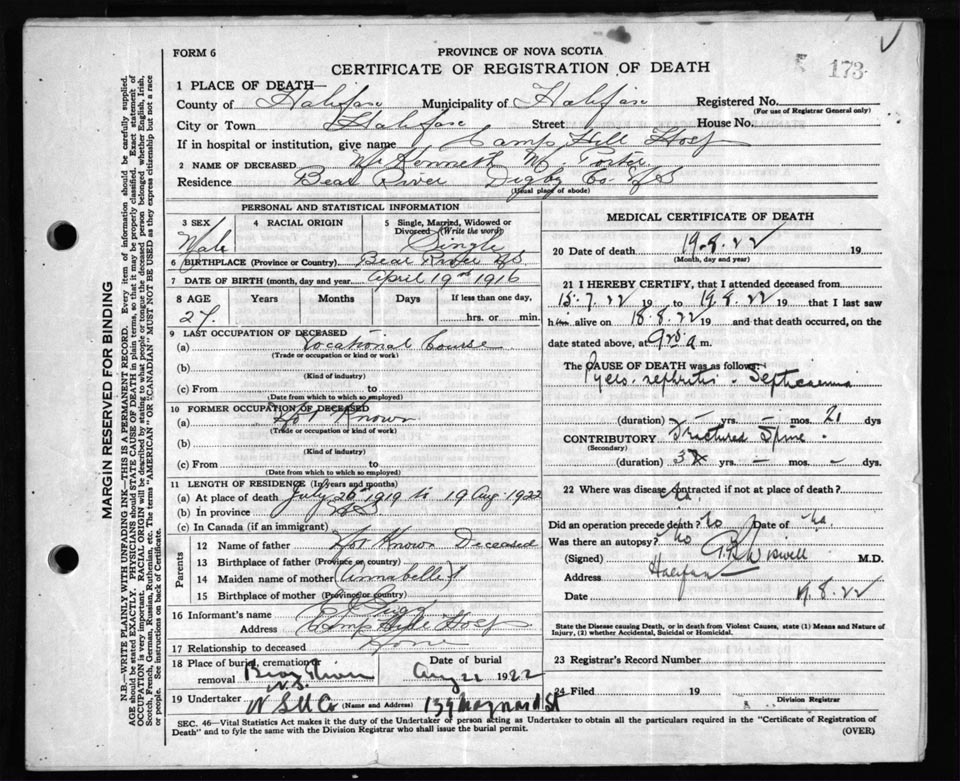 FORM 6
PROVINCE OF NOVA SCOTIA
CERTIFICATE OF REGISTRATION OF DEATH
173
1 PLACE OF DEATH—
County of Halifax Municipality of Halifax Registered No.
(For use of Registrar General only)
City or Town Halifax Street House No.
If in hospital or institution, give name Camp Hill Hosp
2 NAME OF DECEASED Mr Kenneth M. Porter
Residence Bear River Digby Co. N.S
(Usual place of abode)
PERSONAL AND STATISTICAL INFORMATION
3 SEX Male
4 RACIAL ORIGIN
5 Single, Married, Widowed or Divorced (Write the word) Single
6 BIRTHPLACE (Province or Country) Bear River N.S
7 DATE OF BIRTH (month, day and year) April 19 1916
8 AGE Years Months Days If less than one day,
27 hrs. or min.
9 LAST OCCUPATION OF DECEASED
(a) Vocational Course
(Trade or occupation or kind or work)
(b)
(Kind of industry)
(c) From to
(Date from which to which employed)
10 FORMER OCCUPATION OF DECEASED
(a) Not Known
(Trade or occupation or kind of work)
(b)
(Kind of industry)
(c) From to
(Date from which to which so employed)
11 LENGTH OF RESIDENCE (In years and months)
(a) At place of death July 26 1919 to 19 Aug. 1922
(b) In province N.S
(c) In Canada (if an immigrant)
Parents
12 Name of father Not Known Deceased
13 Birthplace of father (Province or country)
14 Maiden name of mother (Annabelle)
15 Birthplace of mother (Province or country)
16 Informant's name
Address Camp Hill Hosp
17 Relationship to deceased None
18 Place of burial, cremation or removal Bear River N.S.
Date of burial Aug 22 1922
19 Undertaker N S U Co (Name and Address) 139 Maynard St
MEDICAL CERTIFICATE OF DEATH
20 Date of death 19.8.22 19
(Month, day and year)
21 I HEREBY CERTIFY, that I attended deceased from
15.7.22 19 to 19.8.22 19 that I last saw
him alive on 18.8.22 19 and that death occurred, on the
date stated above, at 9 a m.
The CAUSE OF DEATH was as follows:
Pyelo-nephritis - Septicaemia
(duration) — yrs. — mos. 21 dys
CONTRIBUTORY Fractured Spine.
(Secondary)
(duration) 3 yrs. — mos. — dys.
22 Where was disease contracted if not at place of death?
na.
Did an operation precede death? No Date of na
Was there an autopsy? No
(Signed) Wiswell M.D.
Address Halifax
Date 19.8.22
State the Disease causing Death, or in death from Violent Causes, state (1) Means and Nature of
Injury, (2) whether Accidental, Suicidal or Homicidal.
23 Registrar's Record Number
24 Filed 19
Division Registrar
SEC. 46—Vital Statistics Act makes it the duty of the Undertaker of person acting as Undertaker to obtain all the particulars required in the "Certificate of Registration of
Death" and to fyle the same with the Division Registrar who shall issue the burial permit.
(OVER)
MARGIN RESERVED FOR BINDING
N.B.—WRITE PLAINLY WITH UNFADING INK—THIS IS A PERMANENT RECORD. Every item of information should be carefully supplied.
AGE should be stated EXACTLY. PHYSICIANS should STATE CAUSE OF DEATH in plain terms, so that it may be properly classified. Exact statement of
OCCUPATION is very important. RACIAL ORIGIN will be described by stating to what people or tongue the deceased person belonged whether English, Irish,
Scotch, French, German, Russian, Ruthenian, etc. The terms "AMERICAN" OR "CANADIAN" MUST NOT BE USED as they express citizenship but not a race
or people. See instructions on back of Certificate.